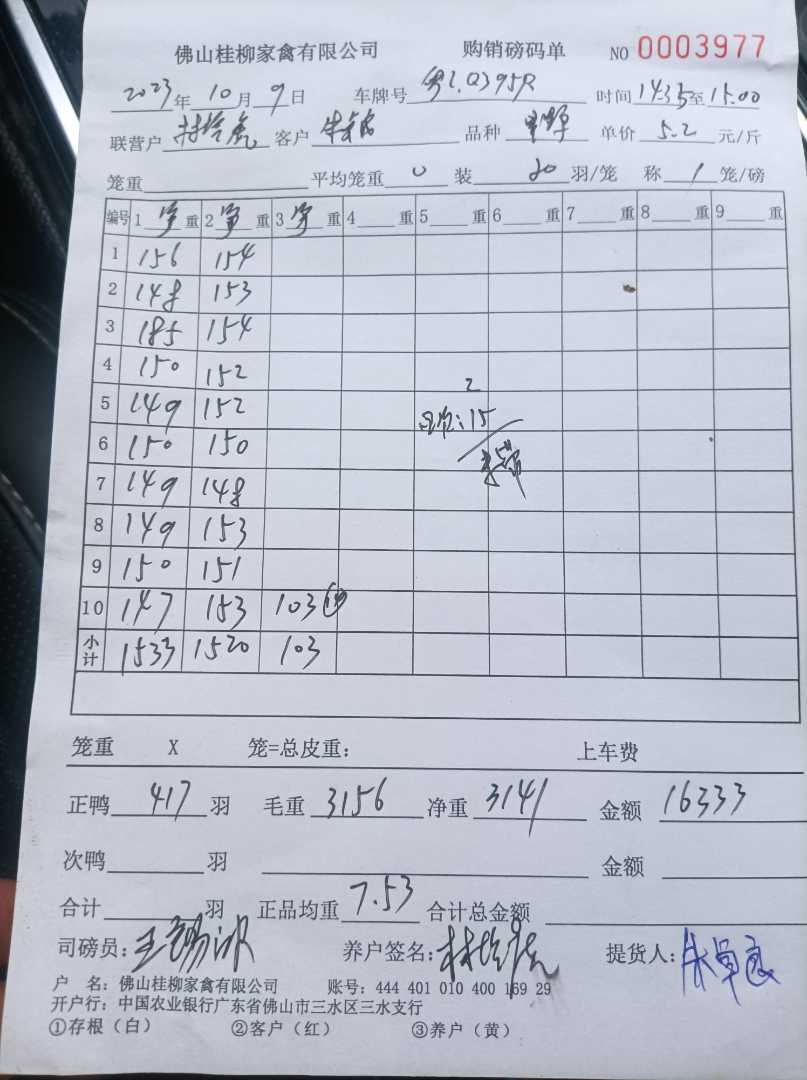 佛山桂柳家禽有限公司 购销磅码单 NO 0003977
2023年10月9日 车牌号 粤L.Q395R 时间 14:35至15:00
联营户 客户 品种 单价 5.2 元/斤
笼重 平均笼重 0 装 20 羽/笼 称 1 笼/磅
编号 1 重 2 重 3 重 4 重 5 重 6 重 7 重 8 重 9 重
1 156 154
2 148 153
3 185 154
4 150 152
5 149 152
2
:15
6 150 150
7 149 148
8 149 153
9 150 151
10 147 153 103
小计 1533 1520 103
笼重 X 笼=总皮重: 上车费
正鸭 417 羽 毛重 3156 净重 3141 金额 16333
次鸭 羽 金额
合计 羽 正品均重 7.53 合计总金额
司磅员: 养户签名: 提货人:
户 名: 佛山桂柳家禽有限公司 账号: 444 401 010 400 169 29
开户行: 中国农业银行广东省佛山市三水区三水支行
①存根（白） ②客户（红） ③养户（黄）